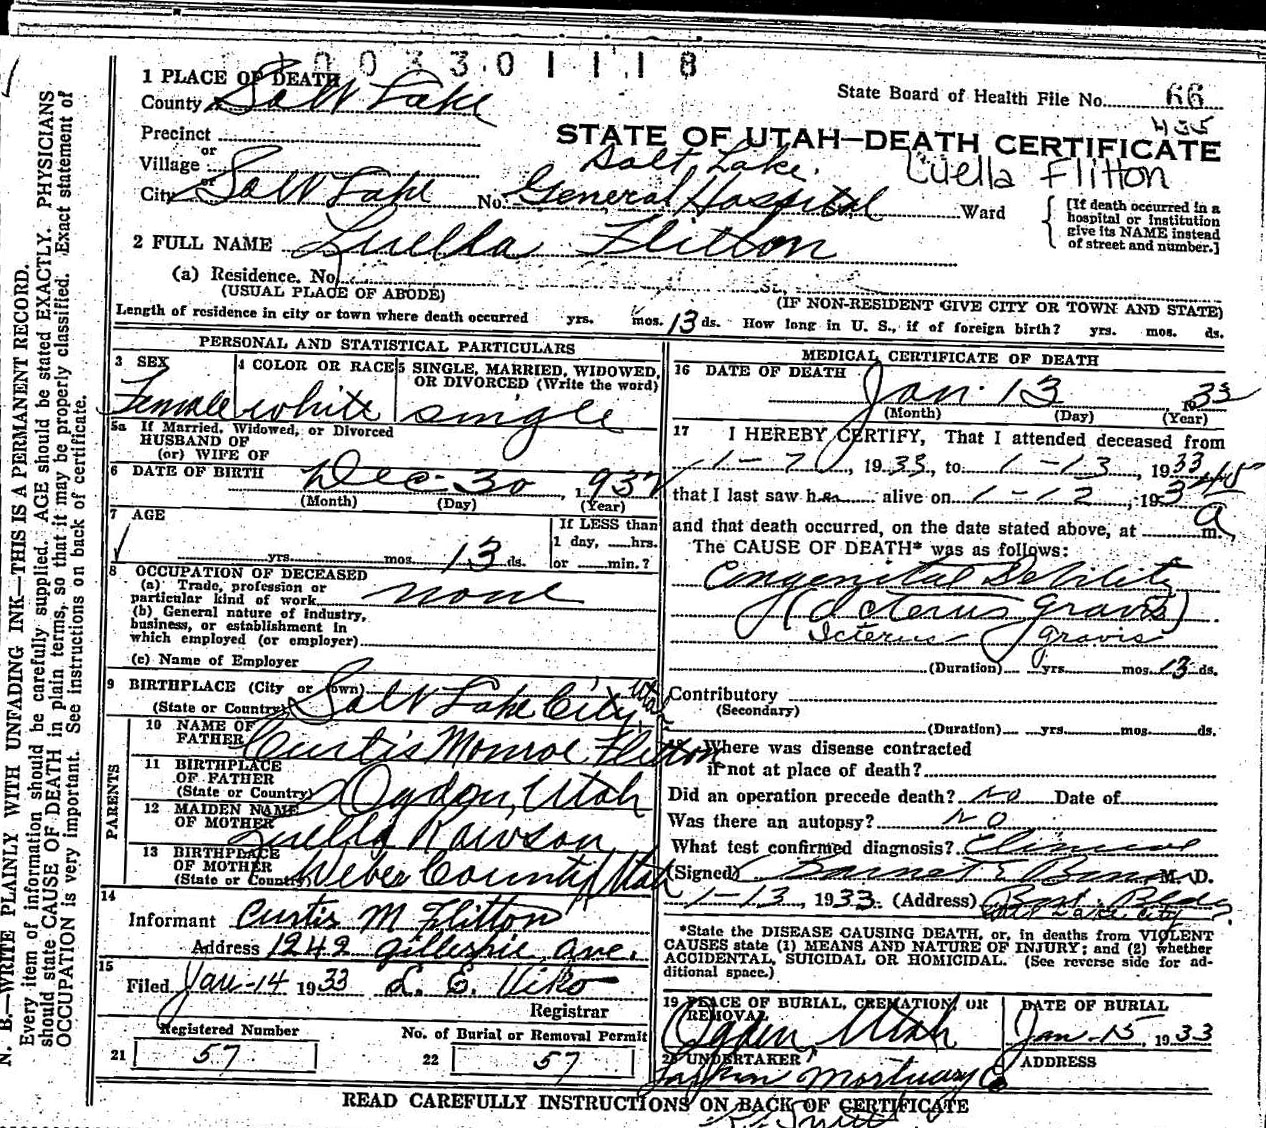 003301118
1 PLACE OF DEATH
County Salt Lake
State Board of Health File No. 66
435
Precinct
or
STATE OF UTAH—DEATH CERTIFICATE
Village
or
Salt Lake
Luella Flitton
City Salt Lake No. General Hospital Ward
[If death occurred in a hospital or institution give its NAME instead of street and number.]
2 FULL NAME Luella Flitton
(a) Residence. No. St.
(USUAL PLACE OF ABODE) (IF NON-RESIDENT GIVE CITY OR TOWN AND STATE)
Length of residence in city or town where death occurred yrs. mos. 13 ds. How long in U. S., if of foreign birth? yrs. mos. ds.
PERSONAL AND STATISTICAL PARTICULARS
3 SEX Female
4 COLOR OR RACE white
5 SINGLE, MARRIED, WIDOWED, OR DIVORCED (Write the word) single
5a If Married, Widowed, or Divorced
HUSBAND OF
(or) WIFE OF
6 DATE OF BIRTH Dec- 30, 1932
(Month) (Day) (Year)
7 AGE
yrs. mos. 13 ds.
If LESS than
1 day, hrs.
or min.?
8 OCCUPATION OF DECEASED
(a) Trade, profession or
particular kind of work none
(b) General nature of industry,
business, or establishment in
which employed (or employer)
(c) Name of Employer
9 BIRTHPLACE (City or town)
(State or Country) Salt Lake City, Utah
PARENTS
10 NAME OF
FATHER Curtis Monroe Flitton
11 BIRTHPLACE
OF FATHER
(State or Country) Ogden, Utah
12 MAIDEN NAME
OF MOTHER Luella Rawson
13 BIRTHPLACE
OF MOTHER
(State or Country) Weber County Utah
14
Informant Curtis M Flitton
Address 1242 Gillespie Ave.
15
Filed Jan-14 1933 L. E. Viko
Registrar
Registered Number
21 57
No. of Burial or Removal Permit
22 57
MEDICAL CERTIFICATE OF DEATH
16 DATE OF DEATH
Jan. 13 1933
(Month) (Day) (Year)
17 I HEREBY CERTIFY, That I attended deceased from
1-7, 1933, to 1-13, 1933
that I last saw her alive on 1-12, 193
and that death occurred, on the date stated above, at a m.
The CAUSE OF DEATH* was as follows:
Congenital Debility
(Icterus Gravis)
Icterus gravis
(Duration) yrs. mos. 13 ds.
Contributory
(Secondary)
(Duration) yrs. mos. ds.
Where was disease contracted
if not at place of death?
Did an operation precede death? No Date of
Was there an autopsy? No
What test confirmed diagnosis? Clinical
(Signed) M. D.
1-13, 1933. (Address) Bldg
Salt Lake City
*State the DISEASE CAUSING DEATH, or, in deaths from VIOLENT
CAUSES state (1) MEANS AND NATURE OF INJURY; and (2) whether
ACCIDENTAL, SUICIDAL OR HOMICIDAL. (See reverse side for ad-
ditional space.)
19 PLACE OF BURIAL, CREMATION, OR
REMOVAL
Ogden, Utah
DATE OF BURIAL
Jan-15, 1933
20 UNDERTAKER
Larkin Mortuary Co
ADDRESS
READ CAREFULLY INSTRUCTIONS ON BACK OF CERTIFICATE
N. B.—WRITE PLAINLY WITH UNFADING INK—THIS IS A PERMANENT RECORD.
Every item of information should be carefully supplied. AGE should be stated EXACTLY. PHYSICIANS
should state CAUSE OF DEATH in plain terms, so that it may be properly classified. Exact statement of
OCCUPATION is very important. See instructions on back of certificate.